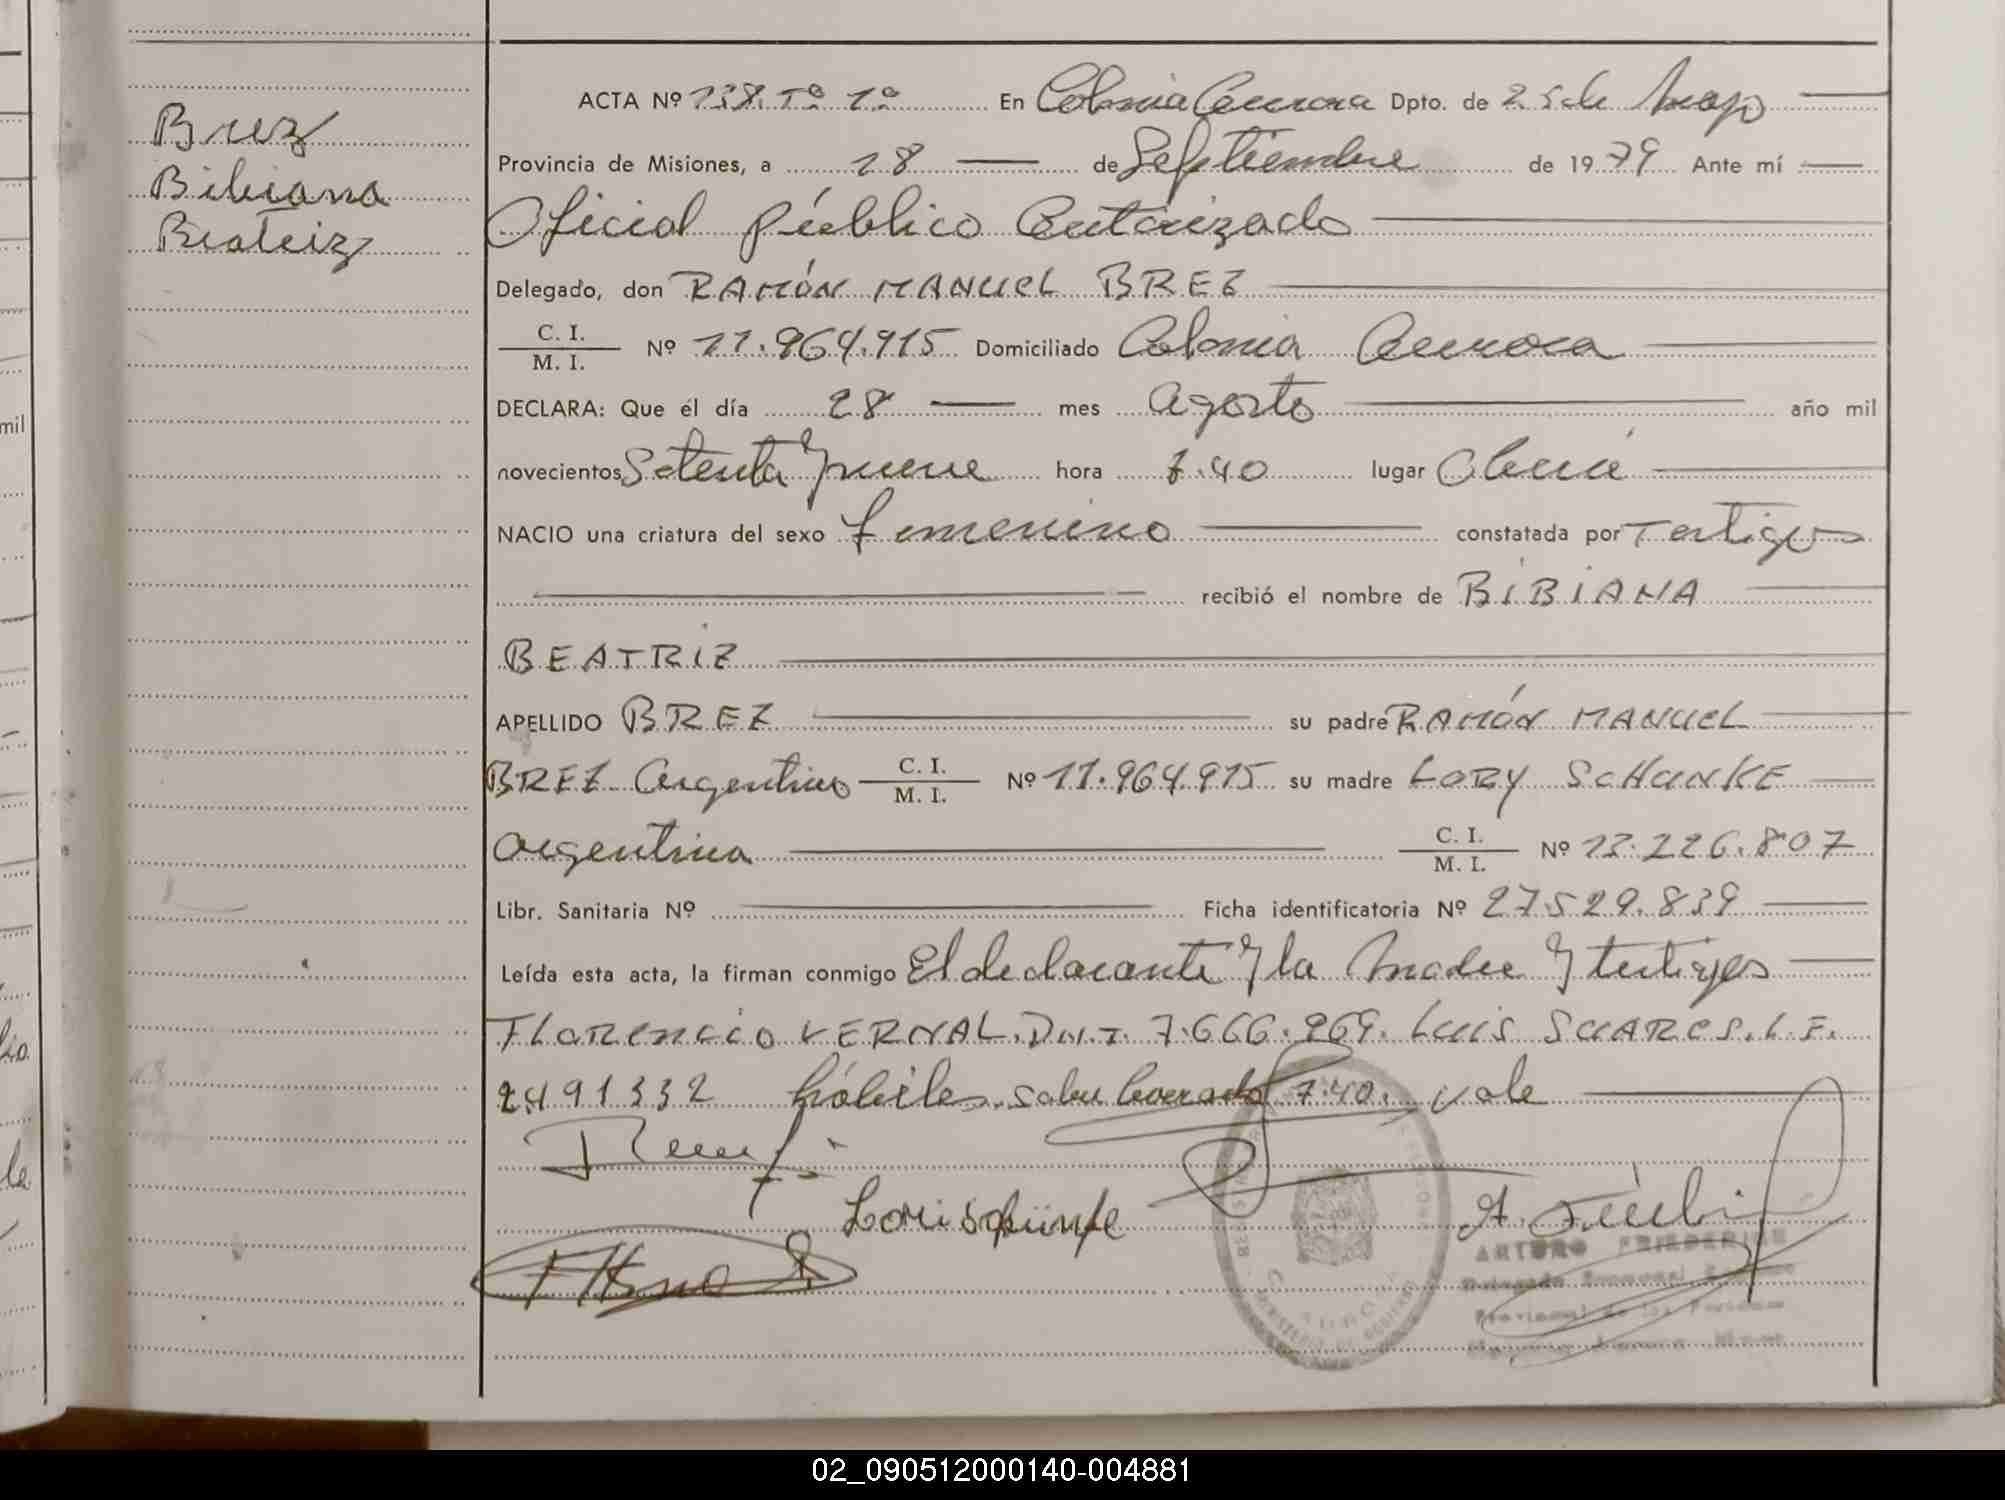 Brez
Bibiana
Beatriz
ACTA Nº 138. Tº 1º En Colonia Aurora Dpto. de 25 de Mayo
Provincia de Misiones, a 18 de Septiembre de 1979 Ante mí
Oficial Público Autorizado
Delegado, don RAMÓN MANUEL BREZ
C. I.
M. I. Nº 11.964.915 Domiciliado Colonia Aurora
DECLARA: Que él día 28 mes Agosto año mil
novecientos Setenta y nueve hora 7.40 lugar Oberá
NACIO una criatura del sexo femenino constatada por Testigos
recibió el nombre de BIBIANA
BEATRIZ
APELLIDO BREZ su padre RAMÓN MANUEL
BREZ Argentino C. I. M. I. Nº 11.964.915 su madre LORY SCHUNKE
Argentina C. I. M. I. Nº 13.226.807
Libr. Sanitaria Nº Ficha identificatoria Nº 27.529.839
Leída esta acta, la firman conmigo El declarante y la Madre y testigos
FLORENCIO VERNAL. D.N.I. 7.666.969. LUIS SUARES. L.E.
2491332 hábiles. sobre borrado 7.40. vale
Lori Schünke
ARTURO
02_090512000140-004881
mil